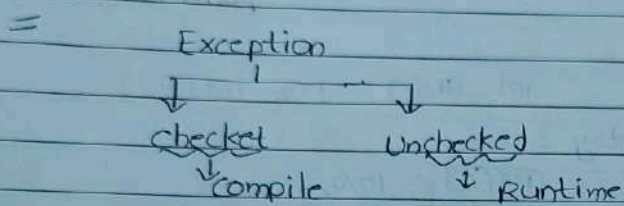 =
Exception
checket Unchecked
compile Runtime